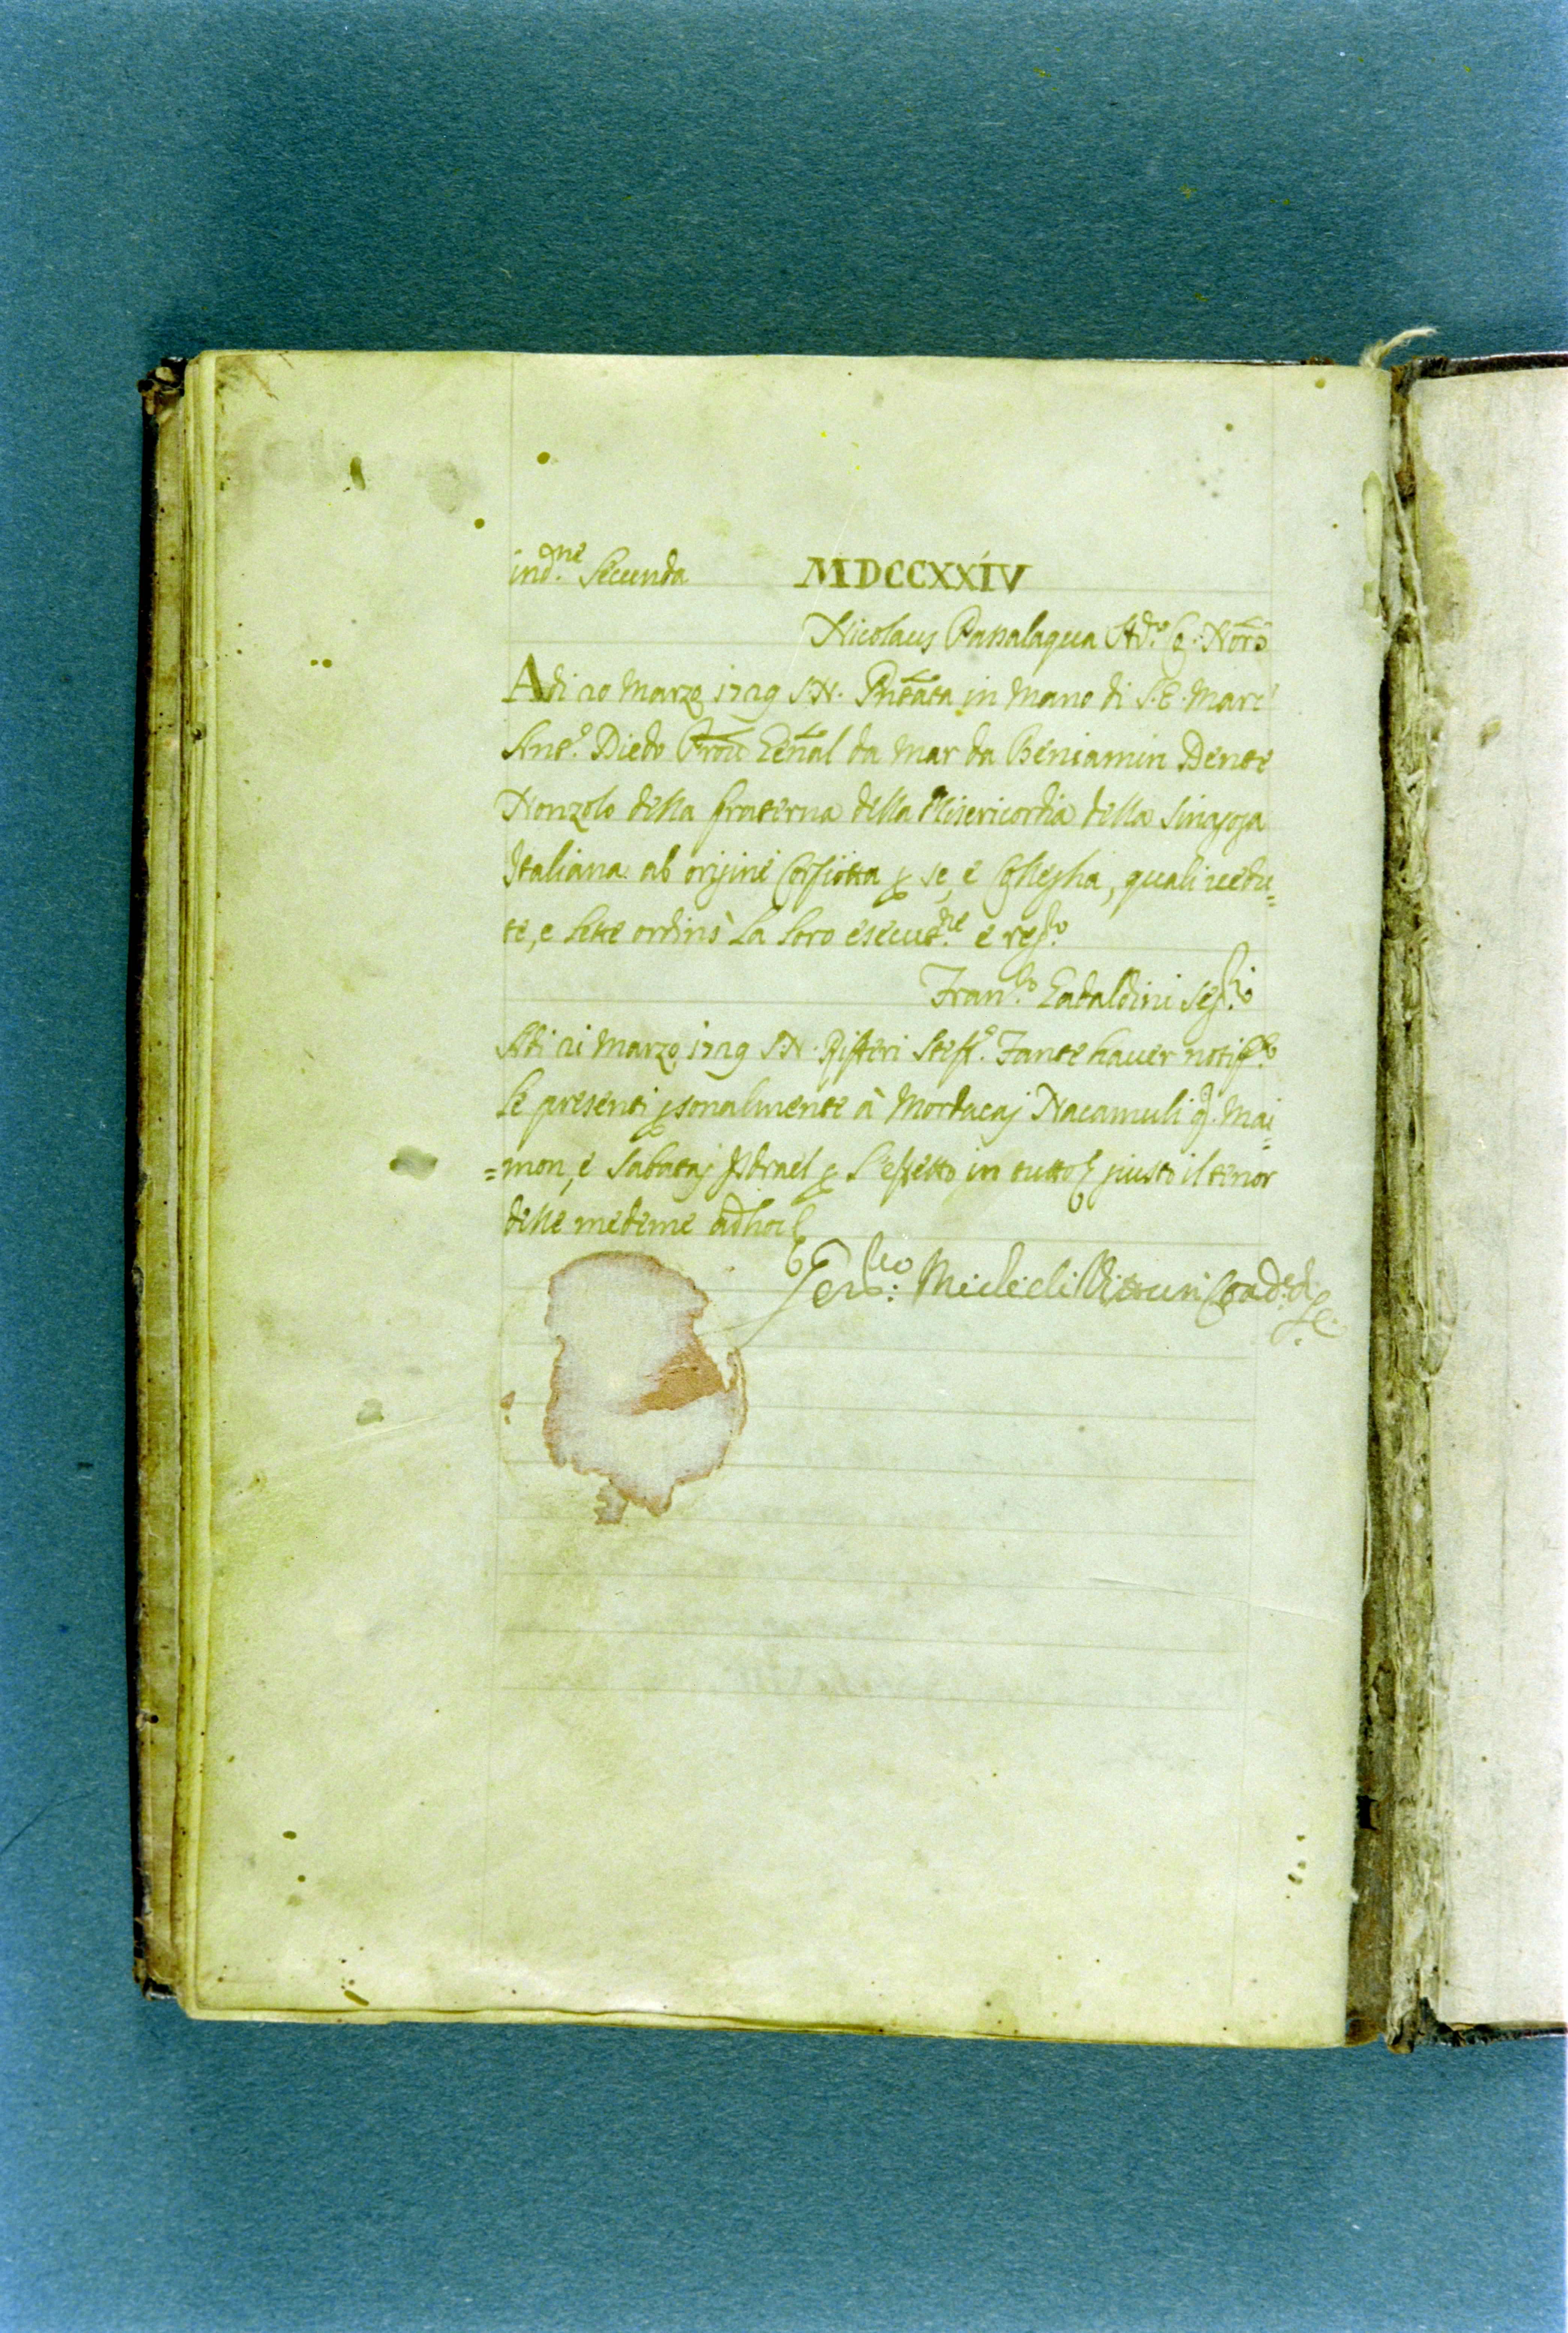 ind.ne Secunda MDCCXXIV
Nicolaus Papalaqua
Adi 20 Marzo 1729 S.N. Pntata in Mano di S.E. Marc'
Ant.o Diedo Prov Genal da Mar da Beniamin Dente
Nonzolo della fraterna della Misericordia della Sinagoga
Italiana ab origine Corfiotta p se, e Colleghi, quali vedu=
te, e lette ordinò la loro esecut.ne e reg.o
Fran.co Gadaldini Seg.rio
Adi 21 Marzo 1729 S.N. Rifferi Steff.o Fante haver notiff.to
le presenti psonalmente à Mordacaj Nacamuli q. Mai=
=mon, e Sabataj Isdrael p l'effetto in tutto giusto il tenor
delle medeme ad hoc